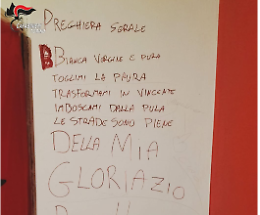 PREGHIERA SERALE
BIANCA VIRGINE E PURA
TOGLIMI LA PAURA
TRASFORMAMI IN VINCENTE
INDOSCAMI DALLA PULA
LE STRADE SONO PIENE
DELLA MIA
GLORIA ZIO